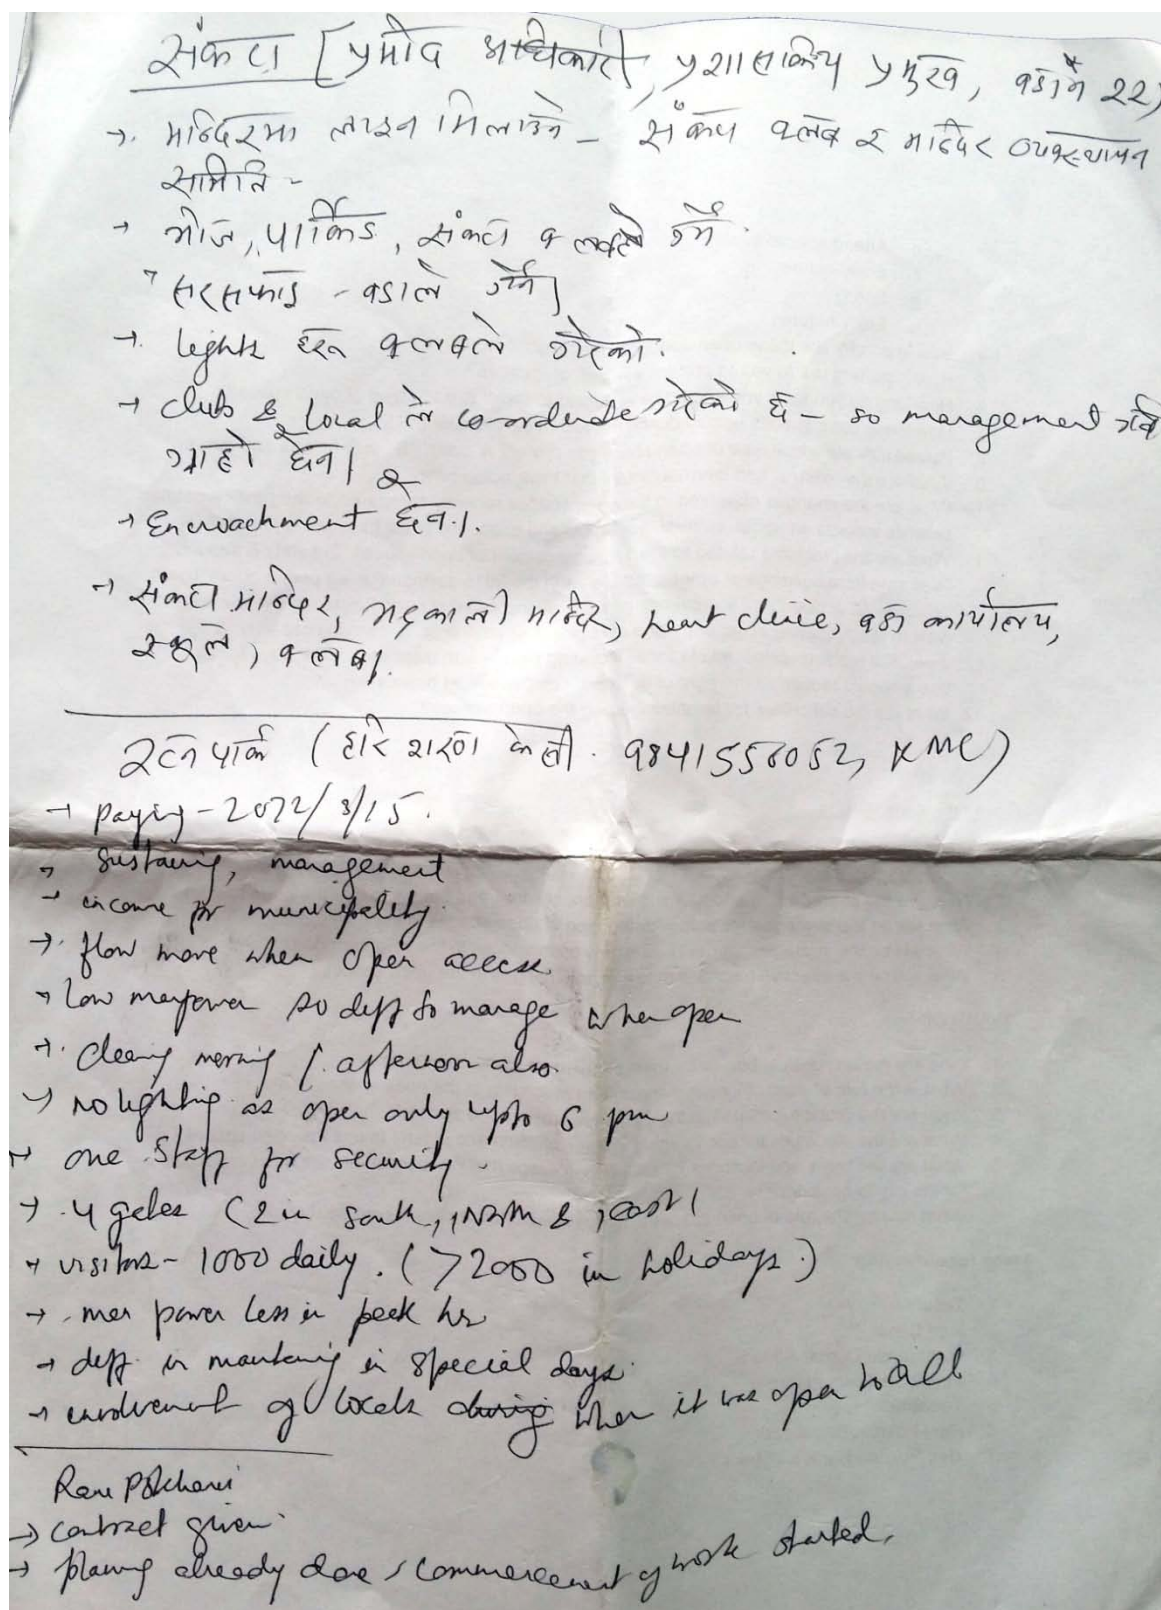 संकटा (प्रमोद अधिकारी, प्रशासकिय प्रमुख, वडा नं २२)
→ मन्दिरमा लाइन मिलाउने - संकटा क्लब र मन्दिर व्यवस्थापन
समिति -
→ भोज, पार्किङ, संकटा क्लबले गर्ने
→ सरसफाइ - वडाले गर्ने।
→ lights हरू क्लबले गरेको.
→ club & local ले co-ordinate गरेको छ - so management गर्न
गाह्रो छैन। र
→ Encroachment छैन।.
→ संकटा मन्दिर, भद्रकाली मन्दिर, heart clinic, वडा कार्यालय,
स्कूल, क्लब।.
रत्नपार्क (हरि शरण के सी. 9841556052, KMC)
→ paying - 2072/3/15.
→ sustaining, management
→ income for municipality.
→ flow more when open access
→ low manpower so diff to manage when open
→ cleaning morning / afternoon also
→ no lighting as open only upto 6 pm
→ one staff for security.
→ 4 gates (2 in south, 1 North & 1 east)
→ visitors - 1000 daily. (>2000 in holidays.)
→ man power less in peek hr
→ diff in maintaining in special days
→ involvement of locals during when it was open to all
Rani Pokhari
→ contract given
→ planing already done / commencement of work started.